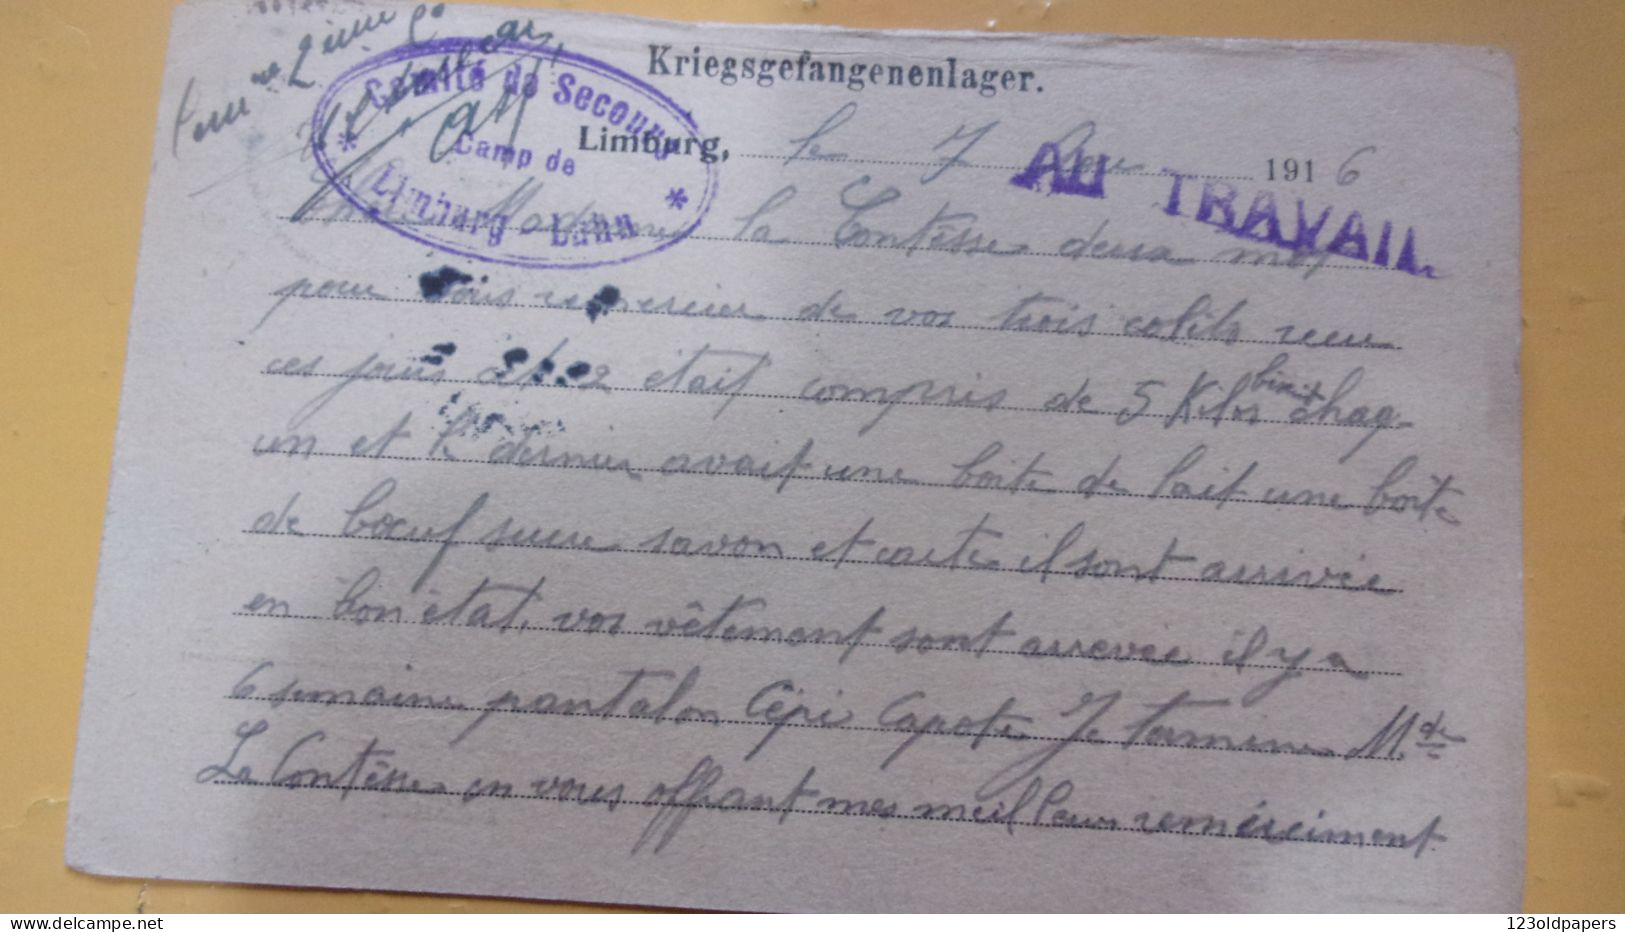 2ème Cie
Comité de Secours
Camp de
Limburg - Lahn
Kriegsgefangenenlager.
Limburg, le 7 1916
AU TRAVAIL.
Madame la Contesse deux mot
pour vous remercier de vos trois colits recu
ces jours était compris de 5 Kilos chaq-
un et le dernier avait une boite de lait une boîte
de bœuf sucre savon et carte il sont arrivée
en bon état, vos vêtement sont arrevée il y a
6 semaine pantalon Cépi Capote Je termine Mde
La Contesse en vous offrant mes meilleur remerciment
123oldpapers